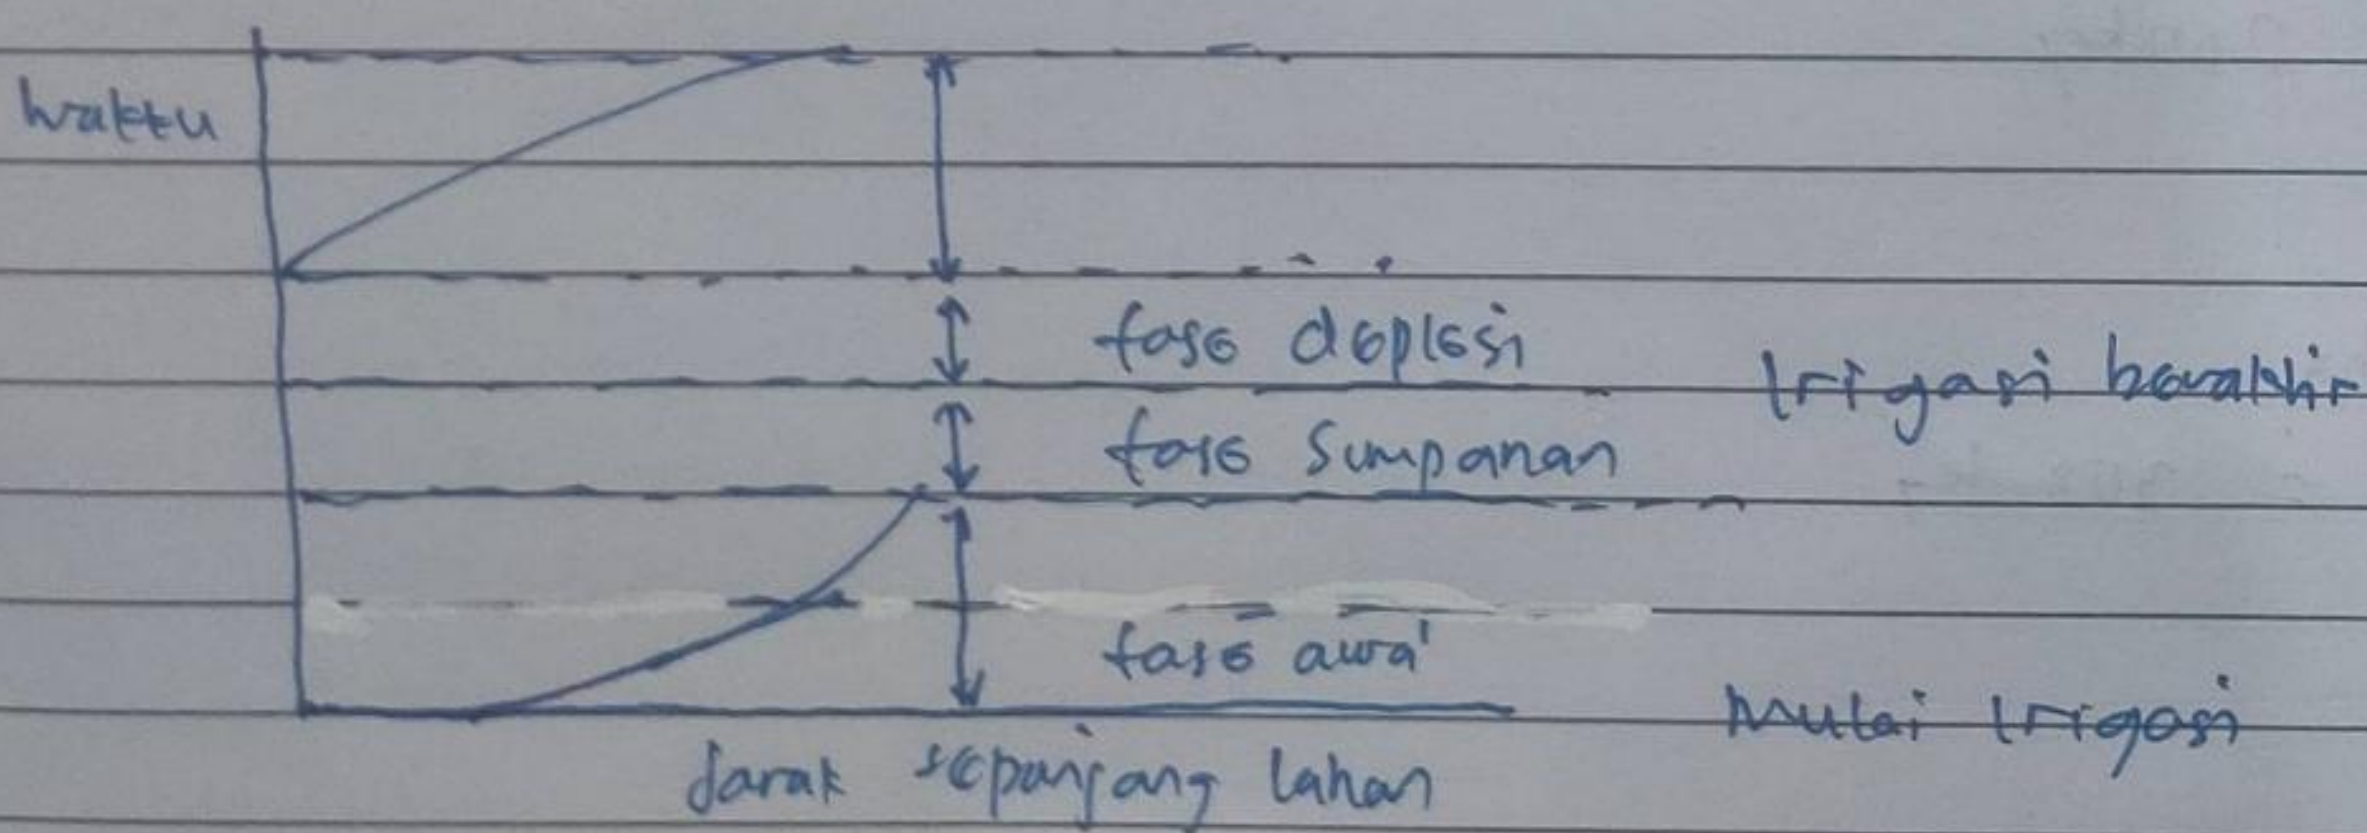 waktu
fase deplesi
Irigasi berakhir
fase simpanan
fase awal
Mulai Irigasi
Jarak sepanjang lahan